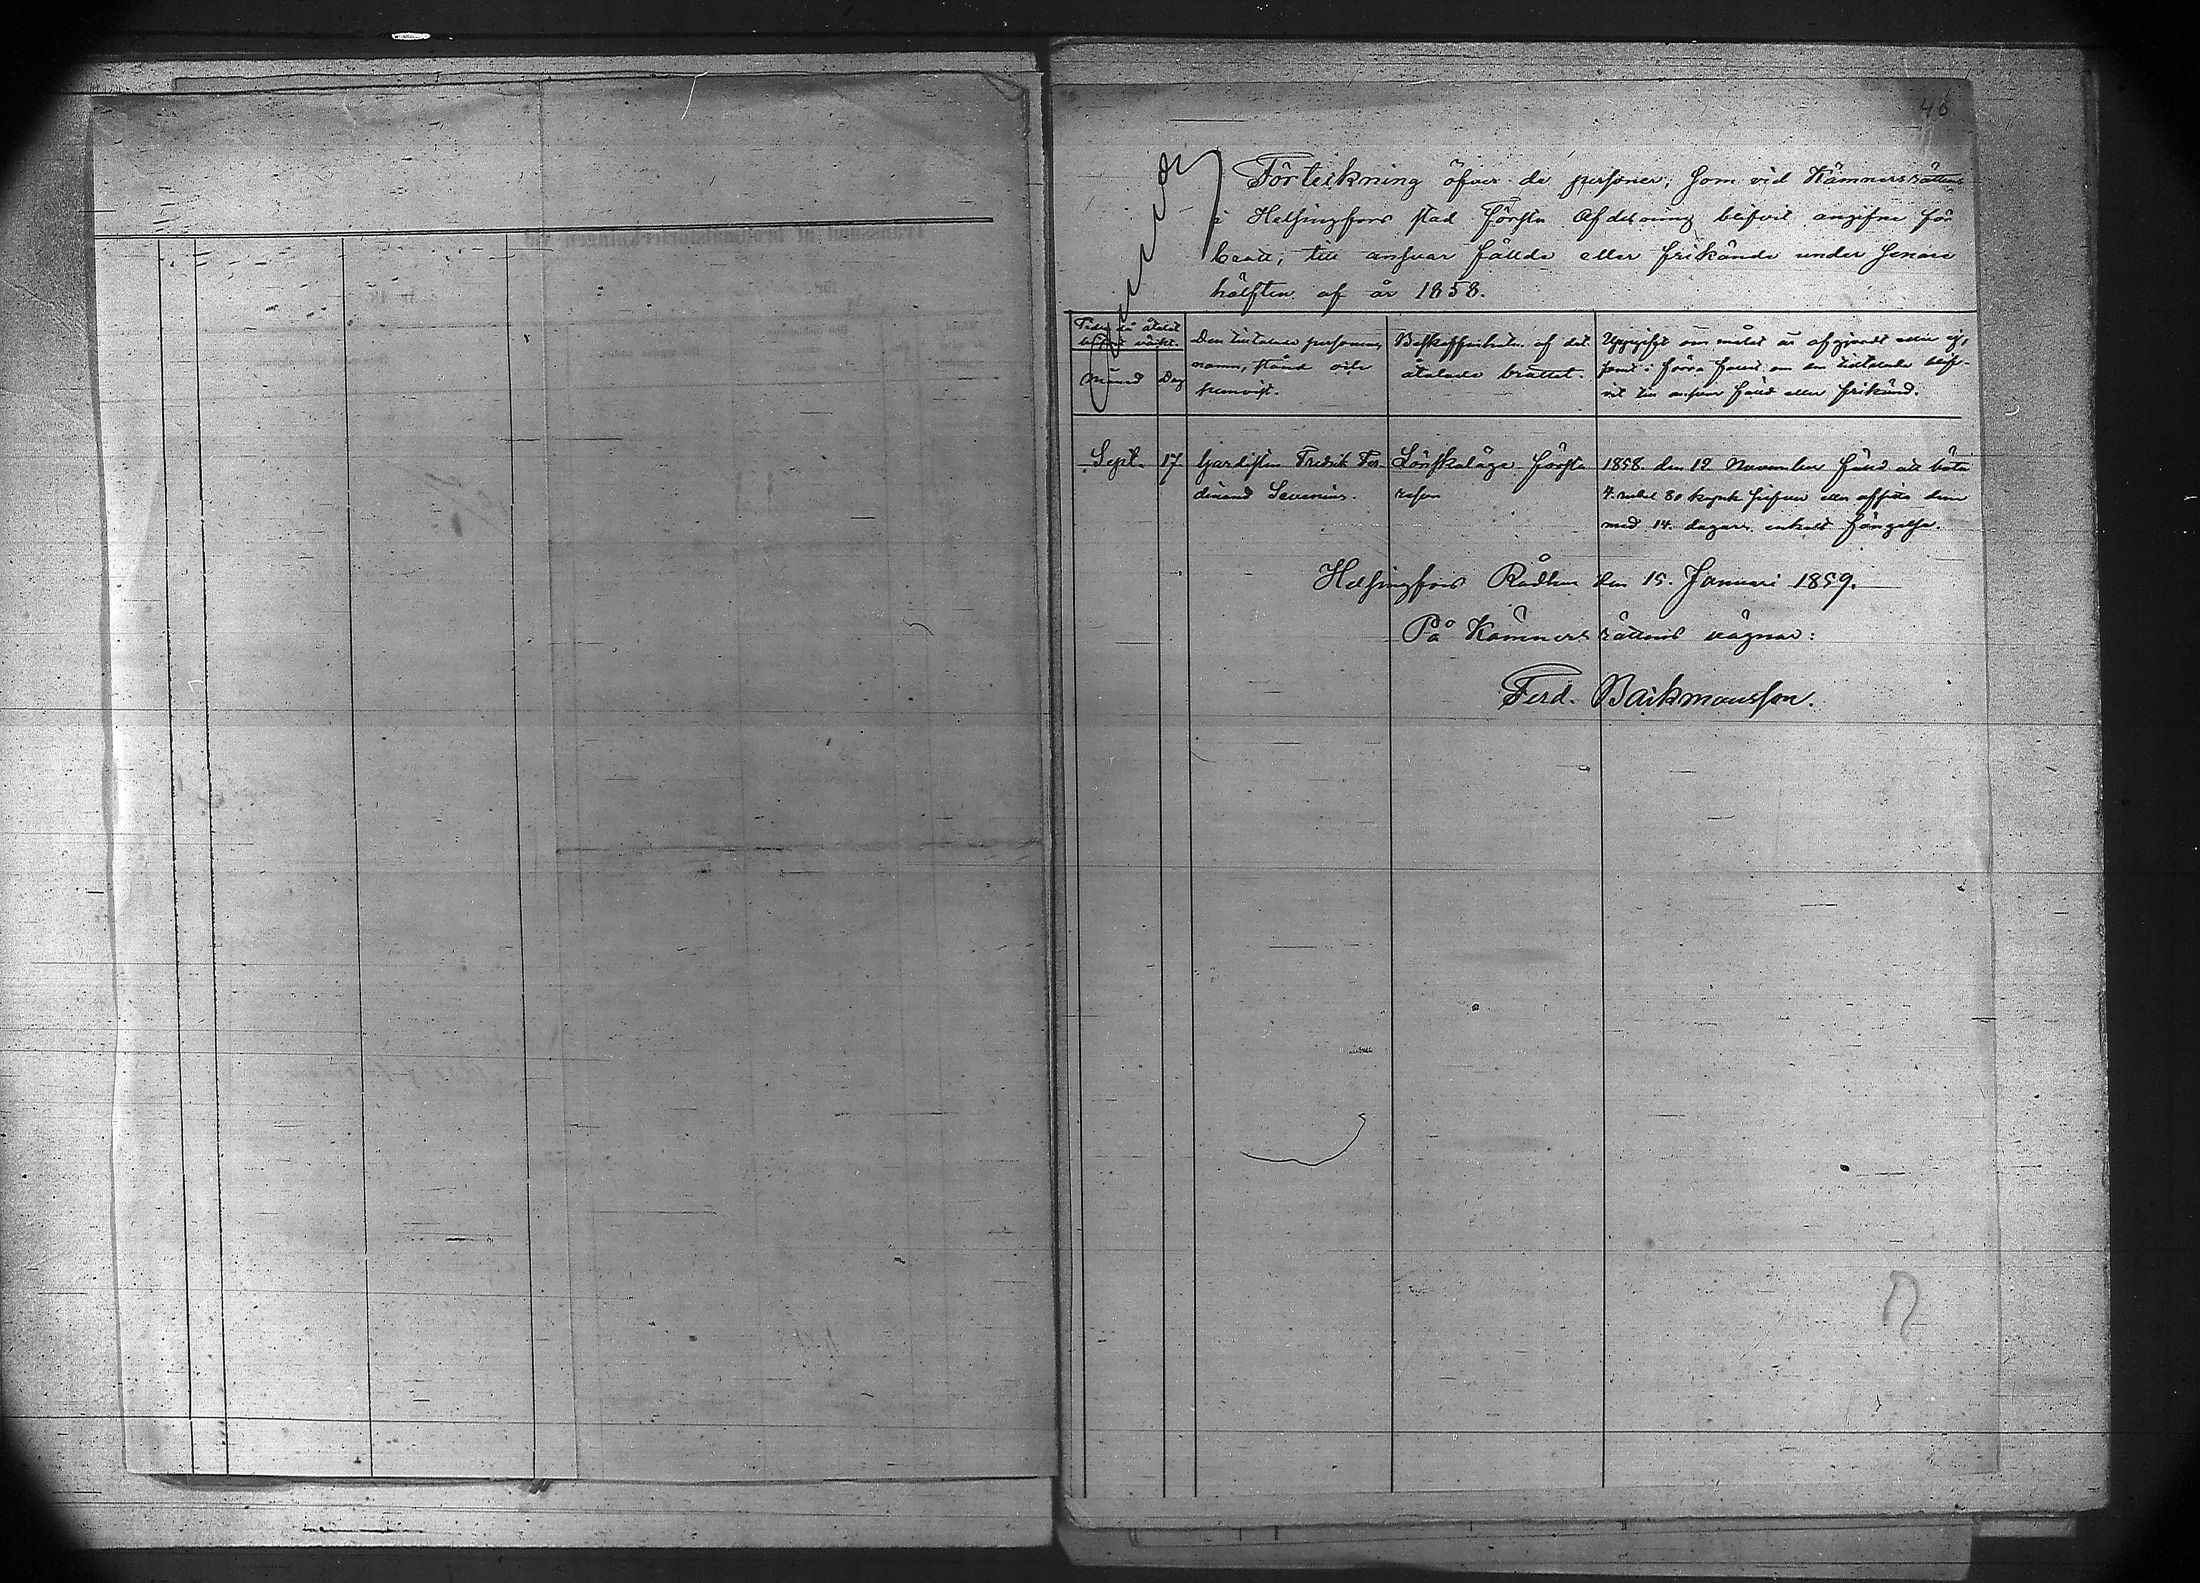 46
Förteckning öfver de personer, som vid Kämnersrätten
i Helsingfors stad Första Afdelning blifvit angifne för
brott, till ansvar fällde eller frikände under senare
hälften af år 1858.
Tiden då åtalet
blifvit väckt.
Månad
Dag
Den tilltalade personens
namn, stånd och
hemvist.
Beskaffenheten af det
åtalade brottet.
Uppgift om målet är afgjordt eller ej,
samt i förra fallet om den tilltalade blif-
vit till ansvar fälld eller frikänd.
Sept. 17
Gardisten Fredrik Fer-
dinand Severius.
Lönskaläge första
resan
1858 den 12 November fälld att böta
4 rubel 80 kopek silfver eller afsitta dem
med 14 dagars enkelt fängelse.
Helsingfors Rådhus den 15. Januari 1859.
På Kämnersrättens vägnar:
Ferd. Backmansson.